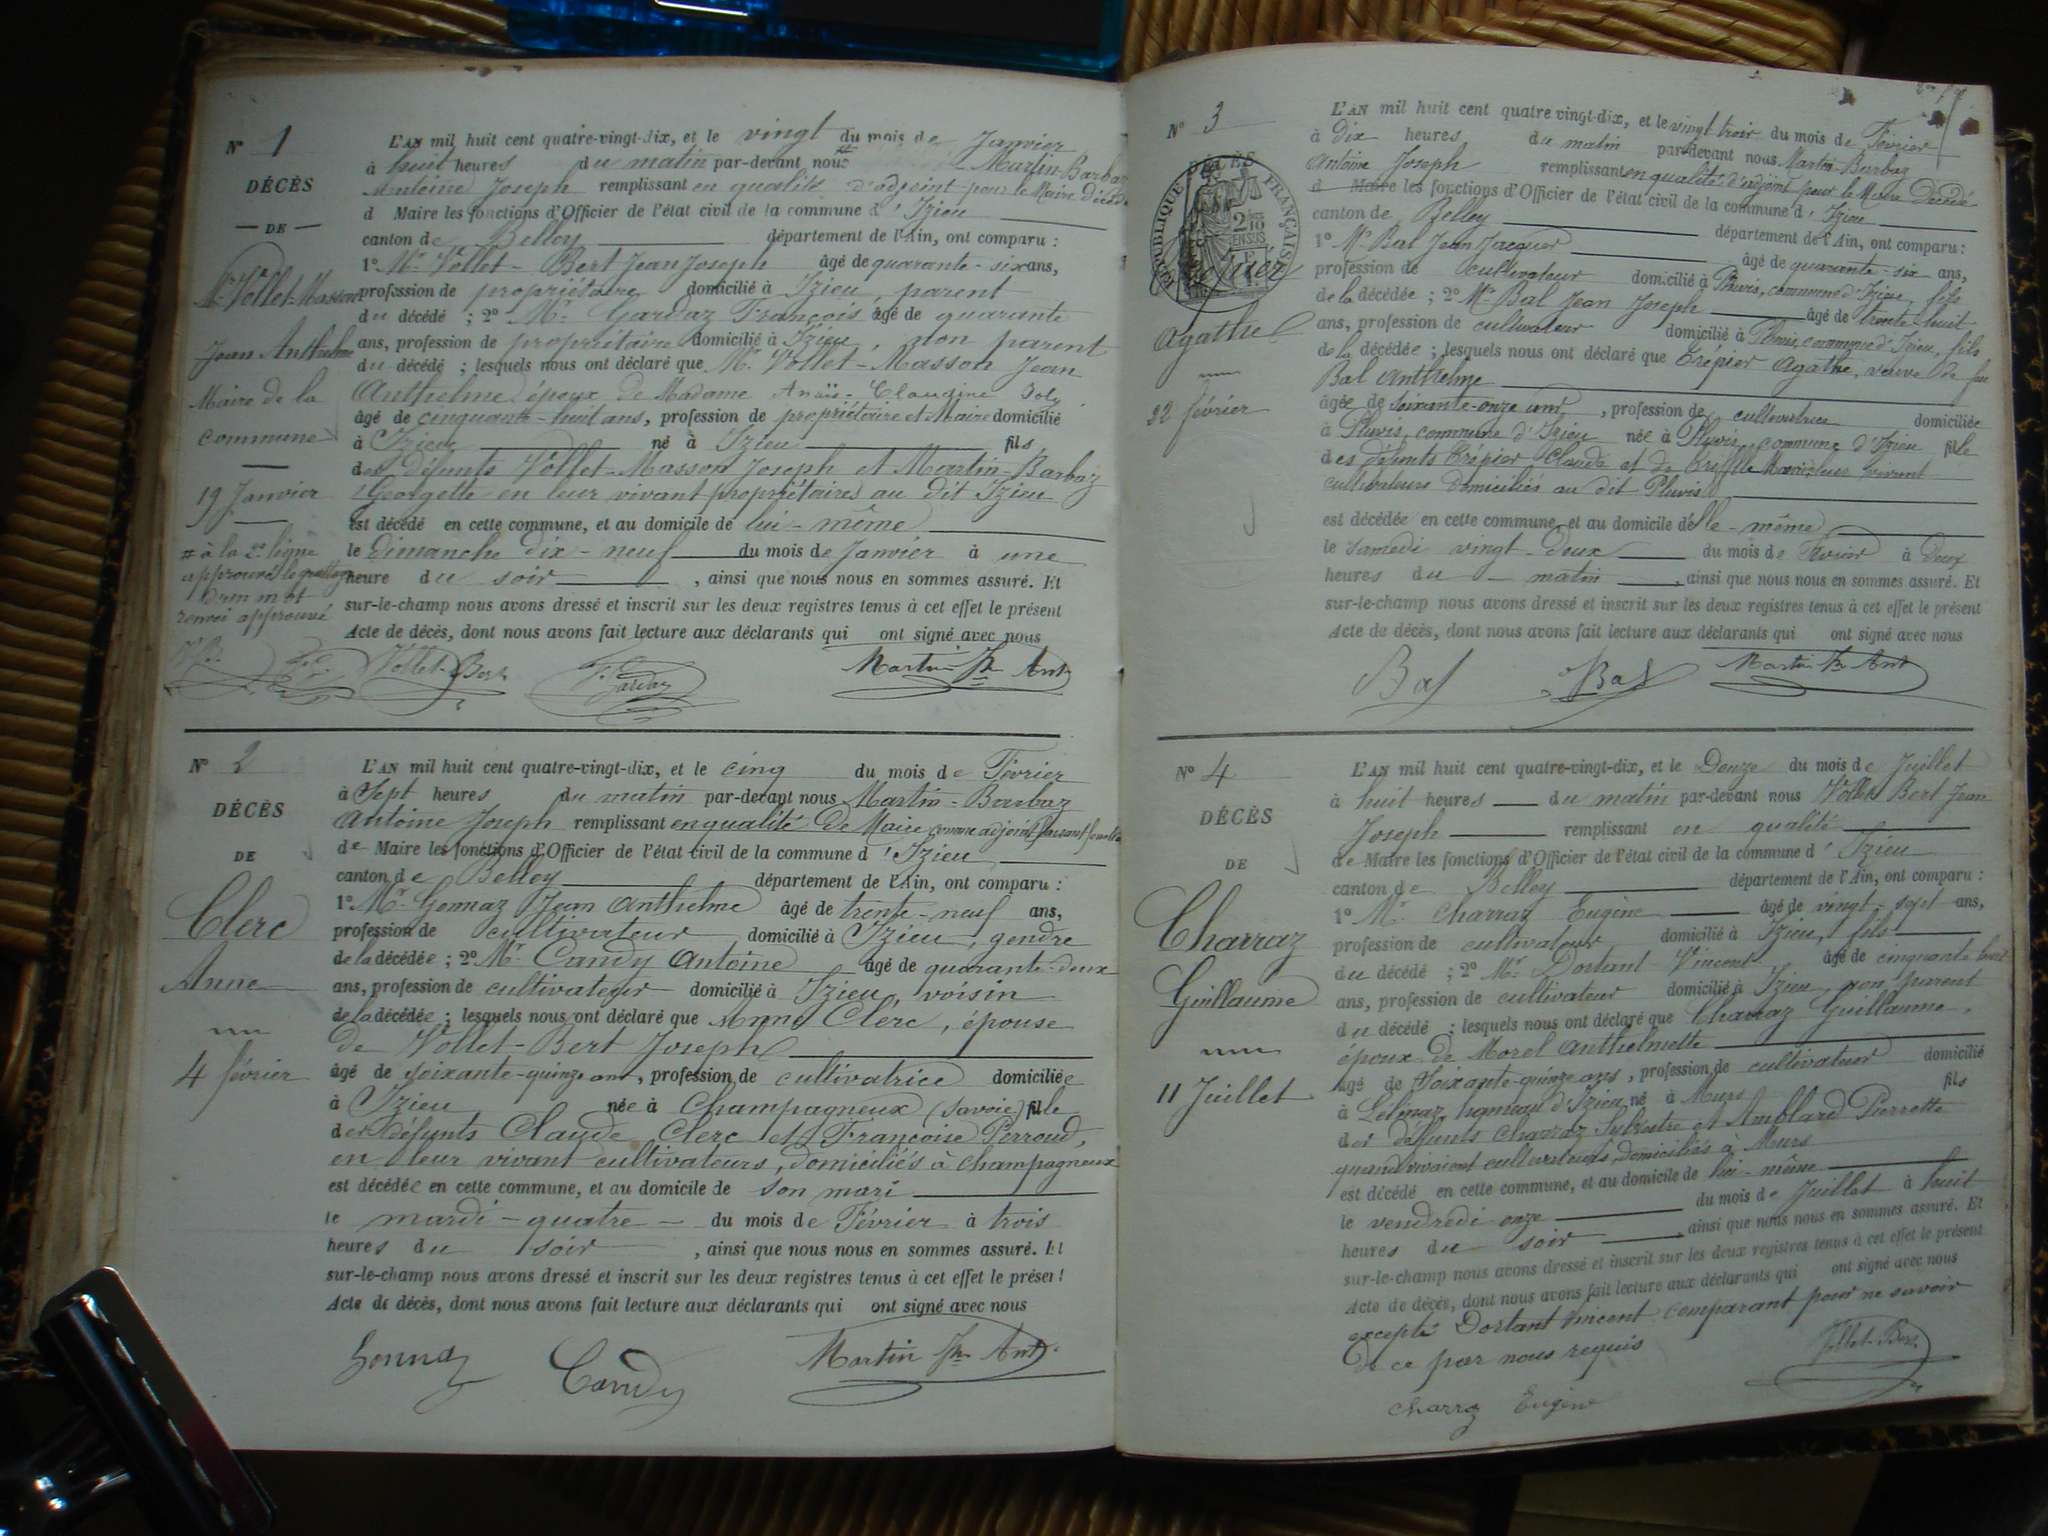 N° 1
DÉCÈS
— DE —
Mr Vollet-Masson
Jean Anthelme
Maire de la
commune
19 Janvier
# à la 2e ligne
approuvé le grattage
d'un mot
renvoi approuvé
V.B.
L'AN mil huit cent quatre-vingt-dix, et le vingt du mois de Janvier
à huit heures du matin par-devant nous Martin-Barbaz
Antoine Joseph remplissant en qualité d'adjoint pour le Maire décédé
d Maire les fonctions d'Officier de l'état civil de la commune d'Izieu
canton de Belley département de l'Ain, ont comparu :
1° Mr Vollet-Bert Jean Joseph âgé de quarante-six ans,
profession de propriétaire domicilié à Izieu, parent
du décédé ; 2° Mr Gardaz François âgé de quarante
ans, profession de propriétaire domicilié à Izieu, non parent
du décédé ; lesquels nous ont déclaré que Mr Vollet-Masson Jean
Anthelme époux de Madame Anaïs-Claudine Joly
âgé de cinquante-huit ans, profession de propriétaire et Maire domicilié
à Izieu né à Izieu fils
des défunts Vollet-Masson Joseph et Martin-Barbaz
Georgette en leur vivant propriétaires au dit Izieu
est décédé en cette commune, et au domicile de lui-même
le Dimanche dix-neuf du mois de Janvier à une
heure du soir, ainsi que nous nous en sommes assuré. Et
sur-le-champ nous avons dressé et inscrit sur les deux registres tenus à cet effet le présent
Acte de décès, dont nous avons fait lecture aux déclarants qui ont signé avec nous
Vollet-Bert F. Gardaz Martin-Bz Ant
N° 2
DÉCÈS
DE
Clerc
Anne
4 février
L'AN mil huit cent quatre-vingt-dix, et le cinq du mois de Février
à Sept heures du matin par-devant nous Martin-Barbaz
Antoine Joseph remplissant en qualité de Maire comme adjoint faisant
de Maire les fonctions d'Officier de l'état civil de la commune d'Izieu
canton de Belley département de l'Ain, ont comparu :
1° Mr Gonnaz Jean Anthelme âgé de trente-neuf ans,
profession de cultivateur domicilié à Izieu, gendre
de la décédée ; 2° Mr Candy Antoine âgé de quarante-deux
ans, profession de cultivateur domicilié à Izieu, voisin
de la décédée ; lesquels nous ont déclaré que Anne Clerc, épouse
de Vollet-Bert Joseph
âgé de soixante-quinze ans, profession de cultivatrice domiciliée
à Izieu née à Champagneux (Savoie) fille
des défunts Claude Clerc et Françoise Perroud,
en leur vivant cultivateurs, domiciliés à Champagneux
est décédée en cette commune, et au domicile de son mari
le mardi-quatre du mois de Février à trois
heures du soir, ainsi que nous nous en sommes assuré. Et
sur-le-champ nous avons dressé et inscrit sur les deux registres tenus à cet effet le présent
Acte de décès, dont nous avons fait lecture aux déclarants qui ont signé avec nous
Gonnaz Candy Martin Bz Ant
N° 3
DÉCÈS
RÉPUBLIQUE FRANÇAISE
2/10 EN SUS
Agathe
22 février
L'AN mil huit cent quatre-vingt-dix, et le vingt trois du mois de Février
à dix heures du matin par-devant nous Martin-Barbaz
Antoine Joseph remplissant en qualité d'adjoint pour le Maire Décédé
d Maire les fonctions d'Officier de l'état civil de la commune d'Izieu
canton de Belley département de l'Ain, ont comparu :
1° Mr Bal Jean Jacques âgé de quarante-six ans,
profession de cultivateur domicilié à Pluvis, commune d'Izieu, fils
de la décédée ; 2° Mr Bal Jean Joseph âgé de trente huit
ans, profession de cultivateur domicilié à Pluvis, commune d'Izieu, fils
de la décédée ; lesquels nous ont déclaré que Crépier Agathe, veuve de feu
Bal Anthelme
âgée de soixante-onze ans, profession de cultivatrice domiciliée
à Pluvis, commune d'Izieu née à Pluvis, commune d'Izieu fille
des défunts Crépier Claude et de vivant
cultivateurs domiciliés au dit Pluvis
est décédée en cette commune, et au domicile d'elle-même
le samedi vingt-deux du mois de Février à deux
heures du matin, ainsi que nous nous en sommes assuré. Et
sur-le-champ nous avons dressé et inscrit sur les deux registres tenus à cet effet le présent
Acte de décès, dont nous avons fait lecture aux déclarants qui ont signé avec nous
Bal Bal Martin Bz Ant
N° 4
DÉCÈS
DE
Charraz
Guillaume
11 Juillet
L'AN mil huit cent quatre-vingt-dix, et le Douze du mois de Juillet
à huit heures du matin par-devant nous Vollet Bert Jean
Joseph remplissant en qualité
de Maire les fonctions d'Officier de l'état civil de la commune d'Izieu
canton de Belley département de l'Ain, ont comparu :
1° Mr Charraz Eugène âgé de vingt-sept ans,
profession de cultivateur domicilié à Izieu, fils
du décédé ; 2° Mr Dortant Vincent âgé de cinquante huit
ans, profession de cultivateur domicilié à Izieu, non parent
du décédé ; lesquels nous ont déclaré que Charraz Guillaume,
époux de Morel Anthelmette
âgé de Soixante-quinze ans, profession de cultivateur domicilié
à Lélinaz, hameau d'Izieu né à Murs fils
des défunts Charraz Sylvestre et Amblard Pierrette
quand vivaient cultivateurs, domiciliés à Murs
est décédé en cette commune, et au domicile de lui-même
le vendredi onze du mois de Juillet à huit
heures du soir, ainsi que nous nous en sommes assuré. Et
sur-le-champ nous avons dressé et inscrit sur les deux registres tenus à cet effet le présent
Acte de décès, dont nous avons fait lecture aux déclarants qui ont signé avec nous
excepté Dortant Vincent comparant pour ne savoir
de ce par nous requis
Vollet-Bert
Charraz Eugène